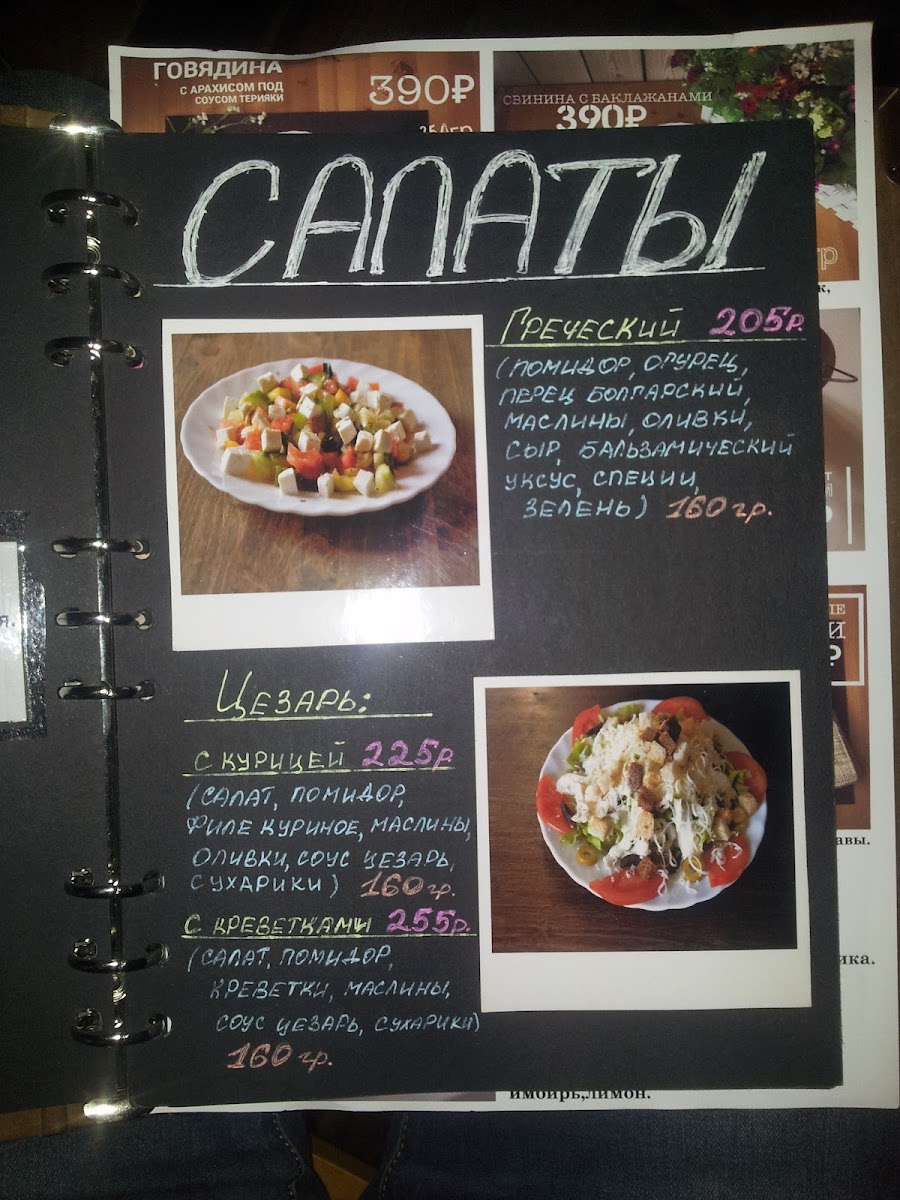 ГОВЯДИНА
С АРАХИСОМ ПОД
СОУСОМ ТЕРИЯКИ
390₽
СВИНИНА С БАКЛАЖАНАМИ
390₽
САЛАТЫ
ГРЕЧЕСКИЙ 205р.
(ПОМИДОР, ОГУРЕЦ,
ПЕРЕЦ БОЛГАРСКИЙ,
МАСЛИНЫ, ОЛИВКИ,
СЫР, БАЛЬЗАМИЧЕСКИЙ
УКСУС, СПЕЦИИ,
ЗЕЛЕНЬ) 160 гр.
ЦЕЗАРЬ:
С КУРИЦЕЙ 225р
(САЛАТ, ПОМИДОР,
ФИЛЕ КУРИНОЕ, МАСЛИНЫ,
ОЛИВКИ, СОУС ЦЕЗАРЬ,
СУХАРИКИ) 160 гр.
С КРЕВЕТКАМИ 255р.
(САЛАТ, ПОМИДОР,
КРЕВЕТКИ, МАСЛИНЫ,
СОУС ЦЕЗАРЬ, СУХАРИКИ)
160 гр.
имбирь,лимон.